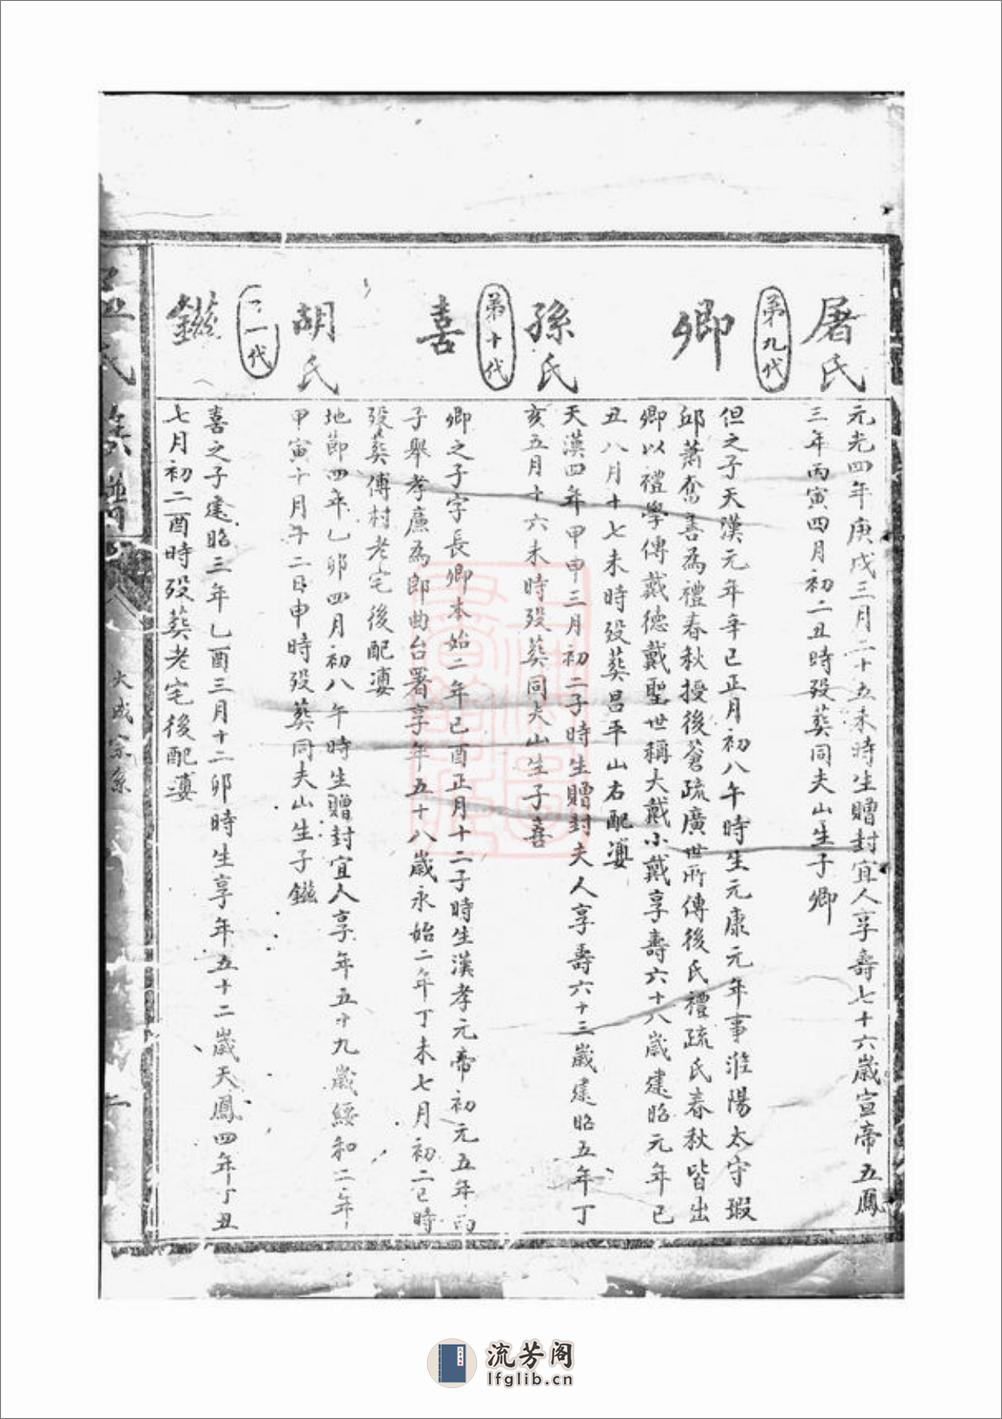 屠氏
元光四年庚戌三月二十五未時生贈封宜人享壽七十六歲宣帝五鳳
三年丙寅四月初二丑時殁葬同夫山生子卿
第九代
卿
但之子天漢元年辛巳正月初八午時生元康元年事淮陽太守瑕
邱蕭奮善為禮春秋授後蒼疏廣世所傳後氏禮疏氏春秋皆出
卿以禮學傳戴德戴聖世稱大戴小戴享壽六十八歲建昭元年已
丑八月十七未時殁葬昌平山右配
孫氏
天漢四年甲申三月初二子時生贈封夫人享壽六十三歲建昭五年丁
亥五月十六未時殁葬同夫山生子喜
第十代
喜
卿之子字長卿本始二年已酉正月十二子時生漢孝元帝初元五年丙
子舉孝廉為郎曲台署享年五十八歲永始二年丁未七月初二巳時
殁葬傅村老宅後配
胡氏
地節四年乙卯四月初八午時生贈封宜人享年五十九歲綏和二年
甲寅十月十二日申時殁葬同夫山生子鎡
一代
鎡
喜之子建昭三年乙酉三月十二卯時生享年五十二歲天鳳四年丁丑
七月初二酉時殁葬老宅後配
孟氏
大成宗系
流芳阁
lfglib.cn